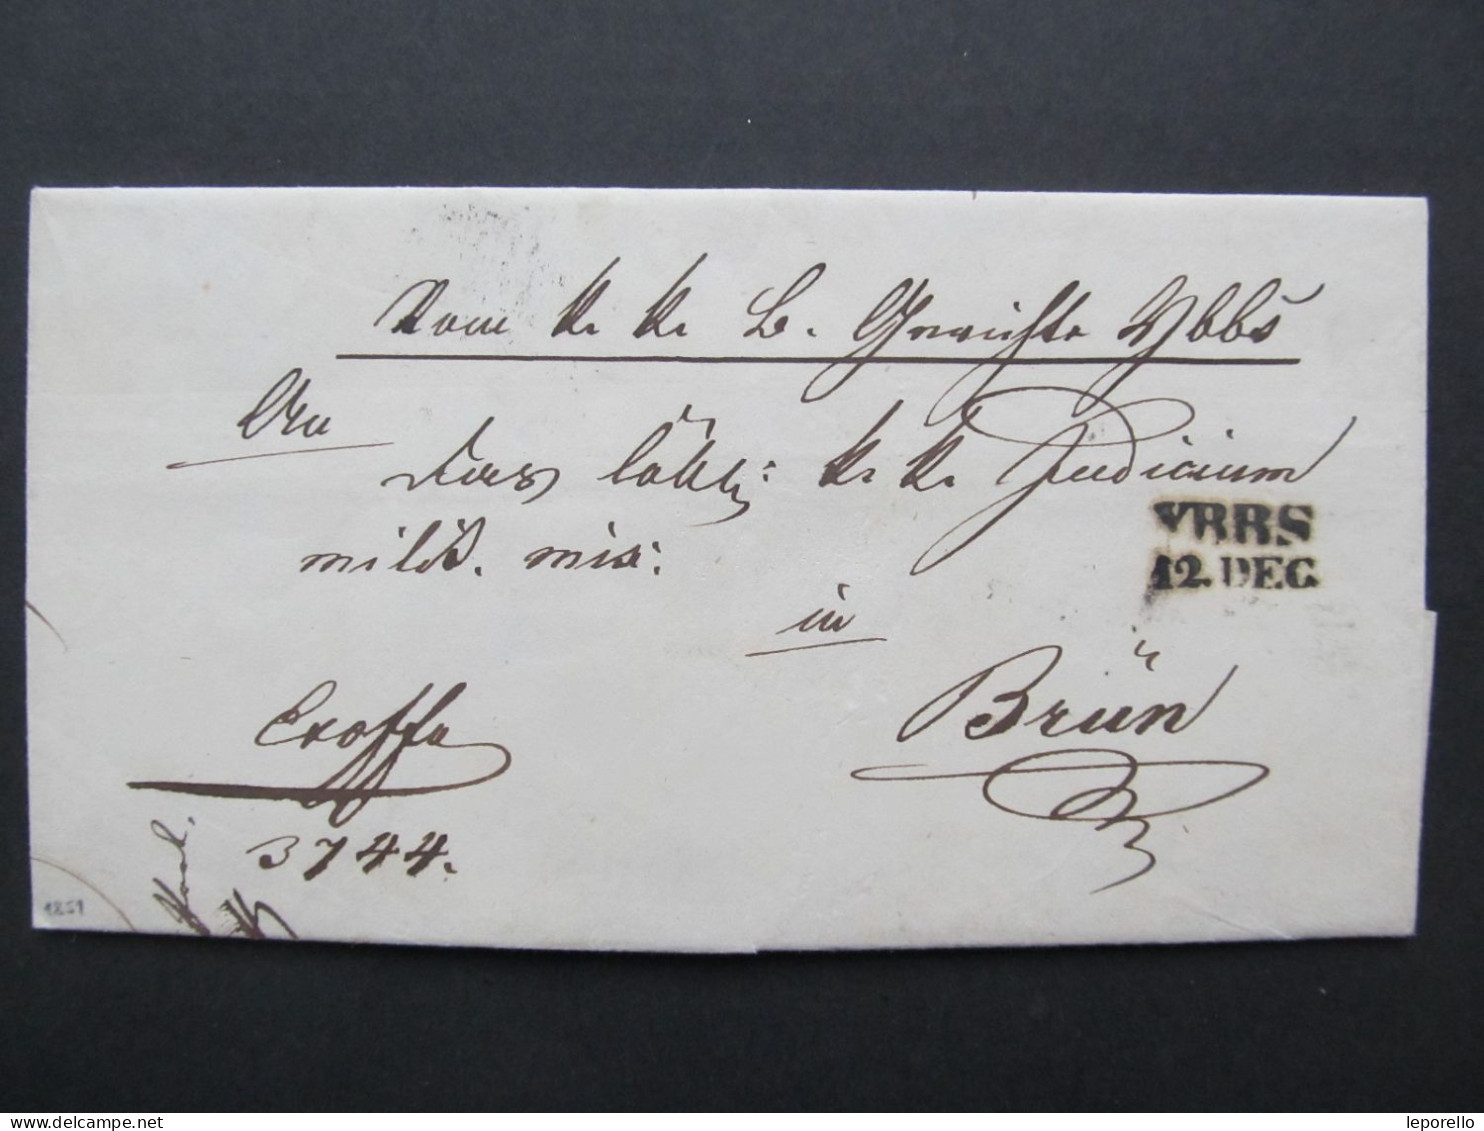 Vom k. k. B. Gerichte Ybbs
An
das löbl: k. k. Judicium
milit. mix:
in
YBBS
12. DEC.
Brün
Exoffo
3744.
1851
www.delcampe.net
leporello